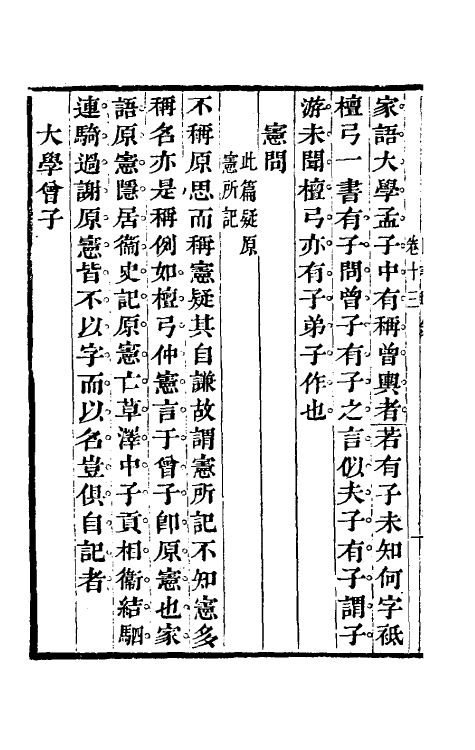 家語大學孟子中有稱曾輿者若有子未知何字祇
檀弓一書有子問曾子有子之言似夫子有子謂子
游未聞檀弓亦有子弟子作也
憲問
此篇疑原
憲所記
不稱原思而稱憲疑其自謙故謂憲所記不知憲多
稱名亦是稱例如檀弓仲憲言于曾子卽原憲也家
語原憲隱居衞史記原憲亡草澤中子貢相衞結駟
連騎過謝原憲皆不以字而以名豈俱自記者
大學曾子
卷十三